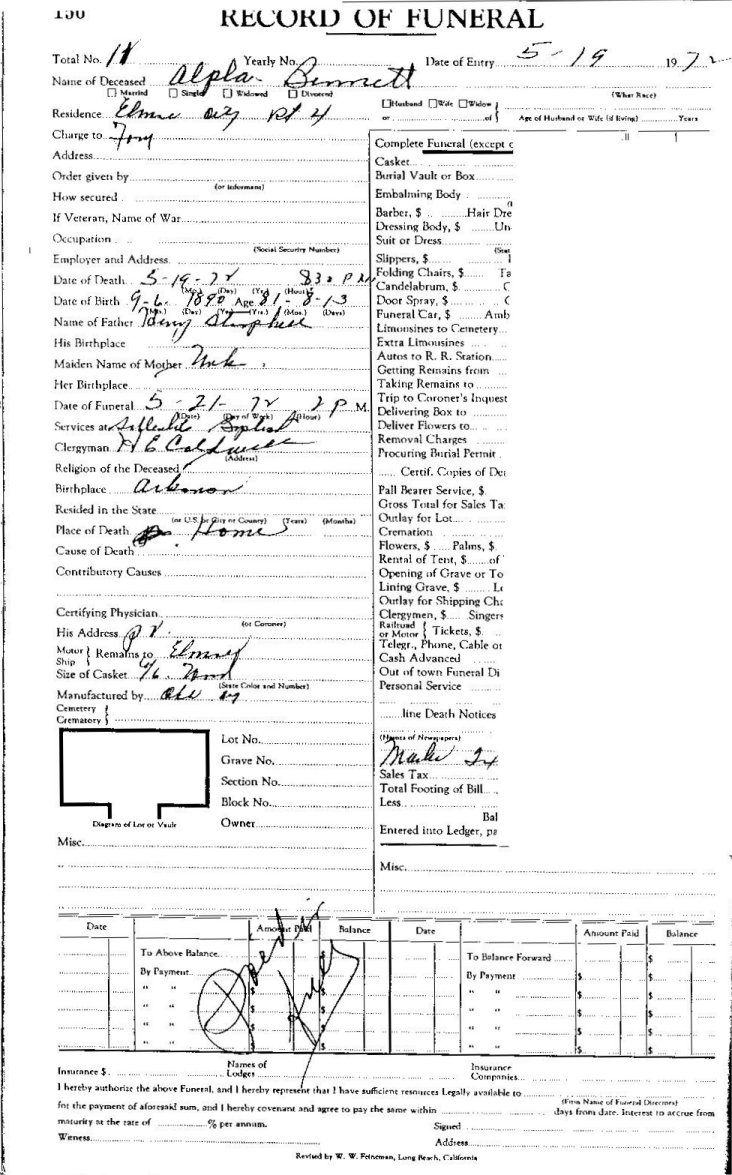 RECORD OF FUNERAL
Total No. Yearly No. Date of Entry 5-19 1972
Name of Deceased Alpha Bennett
Married Single Widowed Divorced (What Race)
Husband Wife Widow
or of Age of Husband or Wife (if living) Years
Residence Rt 4
Charge to
Address
Order given by
(or Informant)
How secured
If Veteran, Name of War
Occupation
(Social Security Number)
Employer and Address
Date of Death 5-19-72 830 P M
(Mo.) (Day) (Yr.) (Hour)
Date of Birth 9-6-1890 Age 81-8-13
(Mo.) (Day) (Yr.) (Yrs.) (Mos.) (Days)
Name of Father Henry
His Birthplace
Maiden Name of Mother Unk
Her Birthplace
Date of Funeral 5-21-72 2 P M.
(Date) (Day of Week) (Hour)
Services at Baptist
Clergyman H E Caldwell
(Address)
Religion of the Deceased
Birthplace
Resided in the State
(or U.S. or City or County) (Years) (Months)
Place of Death Home
Cause of Death
Contributory Causes
Certifying Physician
(or Coroner)
His Address
Motor
Ship
Remains to
Size of Casket
(State Color and Number)
Manufactured by
Cemetery
Crematory
Lot No.
Grave No.
Section No.
Block No.
Owner
Diagram of Lot or Vault
Misc.
Complete Funeral (except c
Casket
Burial Vault or Box
Embalming Body
Barber, $ Hair Dre
Dressing Body, $ Un
Suit or Dress
(Stat
Slippers, $
Folding Chairs, $ Ta
Candelabrum, $ C
Door Spray, $ C
Funeral Car, $ Amb
Limousines to Cemetery
Extra Limousines
Autos to R. R. Station
Getting Remains from
Taking Remains to
Trip to Coroner's Inquest
Delivering Box to
Deliver Flowers to
Removal Charges
Procuring Burial Permit
Certif. Copies of De
Pall Bearer Service, $
Gross Total for Sales Ta
Outlay for Lot
Cremation
Flowers, $ Palms, $
Rental of Tent, $ of
Opening of Grave or To
Lining Grave, $ Le
Outlay for Shipping Cha
Clergymen, $ Singers
Railroad
or Motor
Tickets, $
Telegr., Phone, Cable or
Cash Advanced
Out of town Funeral Di
Personal Service
line Death Notices
(Names of Newspapers)
Sales Tax
Total Footing of Bill
Less
Bal
Entered into Ledger, pa
Misc.
Date Amount Paid Balance Date Amount Paid Balance
To Above Balance To Balance Forward $
By Payment By Payment $ $
" " $ $ " " $ $
" " $ $ " " $ $
" " $ $ " " $ $
" " $ $ " " $ $
Insurance $ Names of Lodges Insurance Companies
I hereby authorize the above Funeral, and I hereby represent that I have sufficient resources Legally available to
(Firm Name of Funeral Directors)
for the payment of aforesaid sum, and I hereby covenant and agree to pay the same within days from date. Interest to accrue from
maturity at the rate of % per annum. Signed
Witness Address
Revised by W. W. Feineman, Long Beach, California